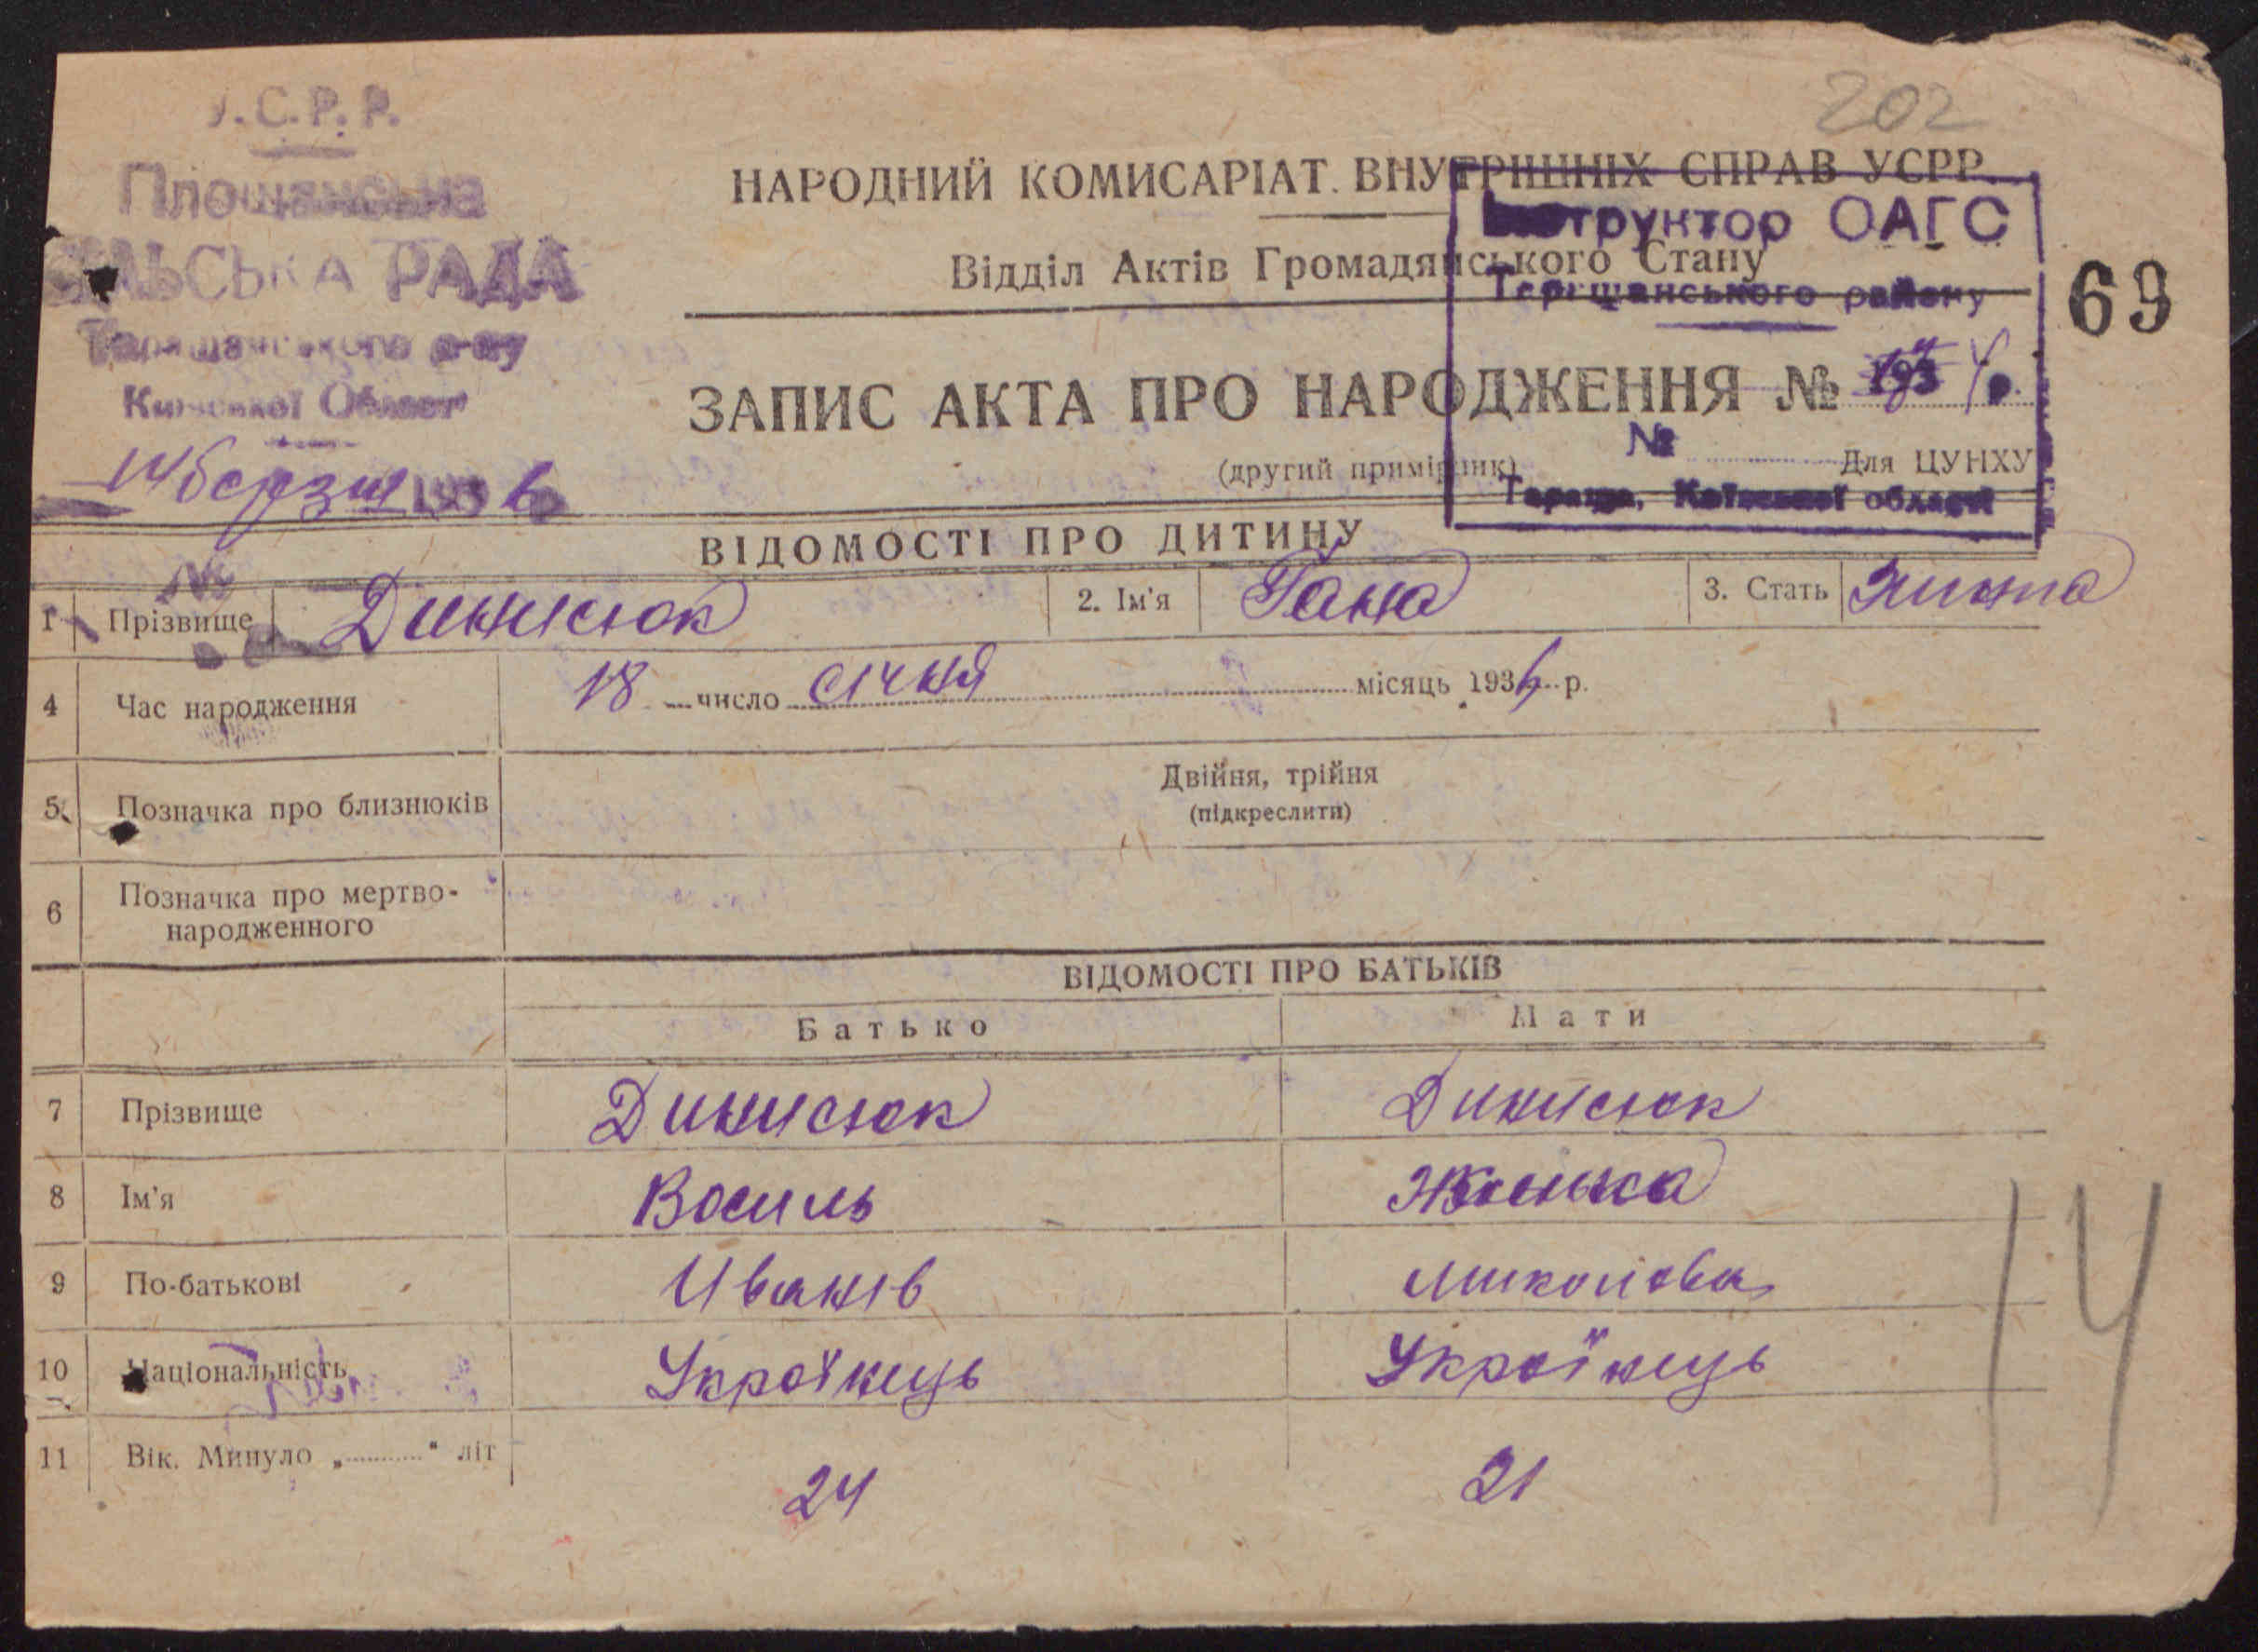 У.С.Р.Р.
Площанська
СІЛЬСЬКА РАДА
Таращанського р-ну
Київської Області
14 березня 1936
202
НАРОДНИЙ КОМИСАРІАТ ВНУТРІШНІХ СПРАВ УСРР
Відділ Актів Громадянського Стану
Інструктор ОАГС
Таращанського району
69
ЗАПИС АКТА ПРО НАРОДЖЕННЯ №
(другий примірник)
№
Для ЦУНХУ
Тараща, Київської області
ВІДОМОСТІ ПРО ДИТИНУ
1 Прізвище Динисюк 2. Ім'я Гана 3. Стать
4 Час народження 18 число січня місяць 1936 р.
5 Позначка про близнюків Двійня, трійня
(підкреслити)
6 Позначка про мертво-
народженного
ВІДОМОСТІ ПРО БАТЬКІВ
Батько Мати
7 Прізвище Динисюк Динисюк
8 Ім'я Василь
9 По-батькові Иванів Миколова
10 Національність Українець Українець
11 Вік. Минуло „..........“ літ 24 21
14